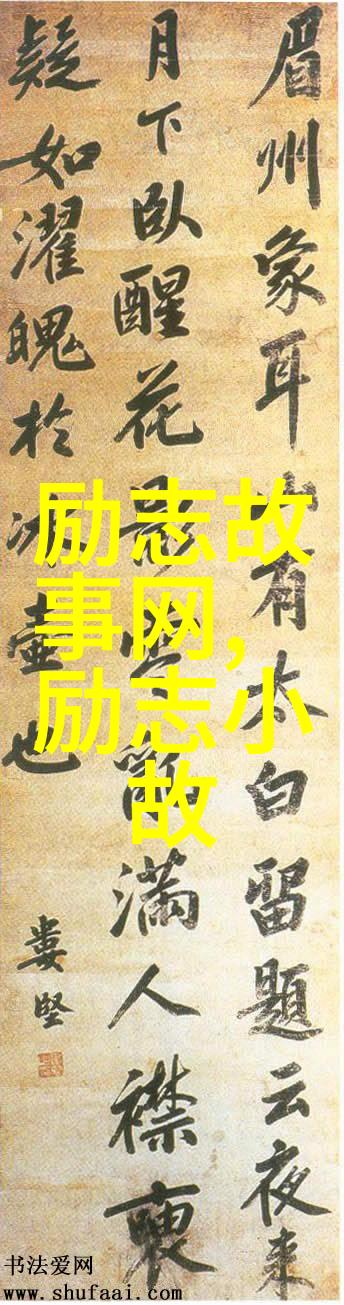 眉州象耳山有太白留题云夜来
月下卧醒花影零乱满人襟袖
疑如濯魄於冰壶也
娄坚
励志故
事网,
励志小
故
书法爱网
www.shufaai.com